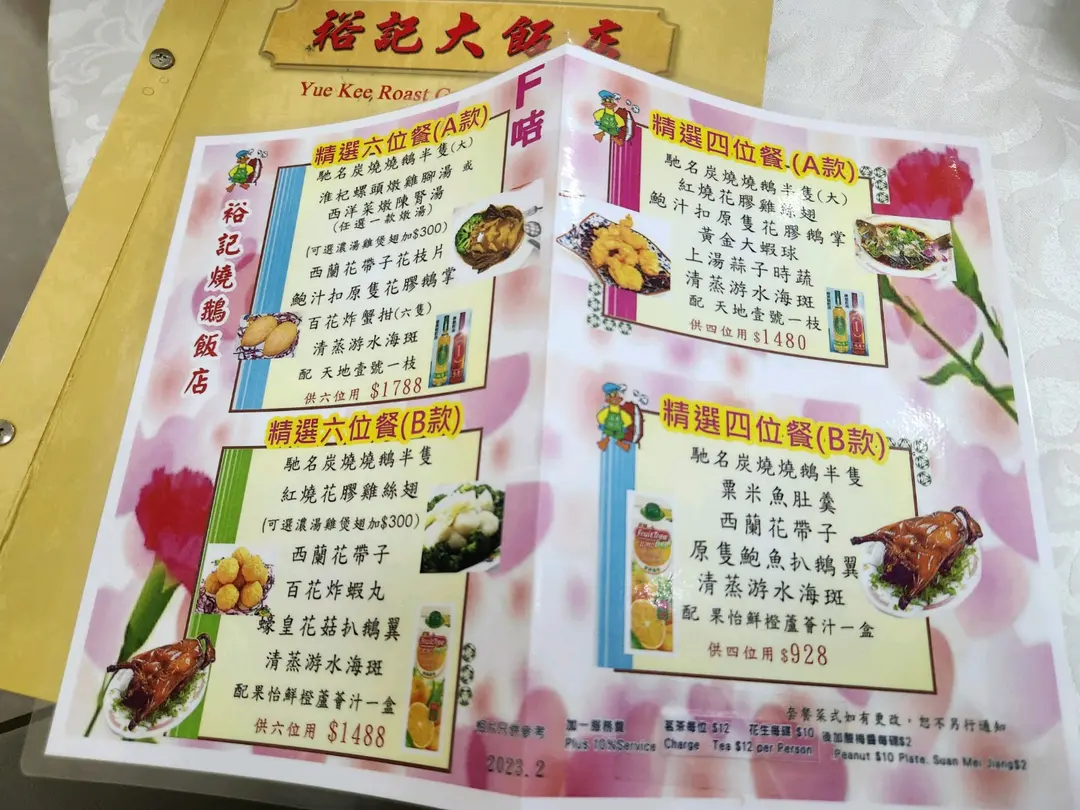 裕記大飯店
Yue Kee Roast G
F咭
裕記燒鵝飯店
精選六位餐(A款)
馳名炭燒燒鵝半隻(大)
淮杞螺頭燉雞腳湯 或
西洋菜燉陳腎湯
(任選一款燉湯)
(可選濃湯雞煲翅加$300)
西蘭花帶子花枝片
鮑汁扣原隻花膠鵝掌
百花炸蟹拑(六隻)
清蒸游水海斑
配 天地壹號一枝
供六位用 $1788
精選六位餐(B款)
馳名炭燒燒鵝半隻
紅燒花膠雞絲翅
(可選濃湯雞煲翅加$300)
西蘭花帶子
百花炸蝦丸
蠔皇花菇扒鵝翼
清蒸游水海斑
配果怡鮮橙蘆薈汁一盒
供六位用 $1488
精選四位餐(A款)
馳名炭燒燒鵝半隻(大)
紅燒花膠雞絲翅
鮑汁扣原隻花膠鵝掌
黃金大蝦球
上湯蒜子時蔬
清蒸游水海斑
配 天地壹號一枝
供四位用 $1480
精選四位餐(B款)
馳名炭燒燒鵝半隻
粟米魚肚羹
西蘭花帶子
原隻鮑魚扒鵝翼
清蒸游水海斑
配 果怡鮮橙蘆薈汁一盒
供四位用 $928
FruitTree
套餐菜式如有更改，恕不另行通知
相片只供參考
加一服務費 茗茶每位 $12 花生每碟 $10 後加酸梅醬每碟$2
Plus 10%Service Charge Tea $12 per Person Peanut $10 Plate. Suan Mei Jiang$2
2023.2